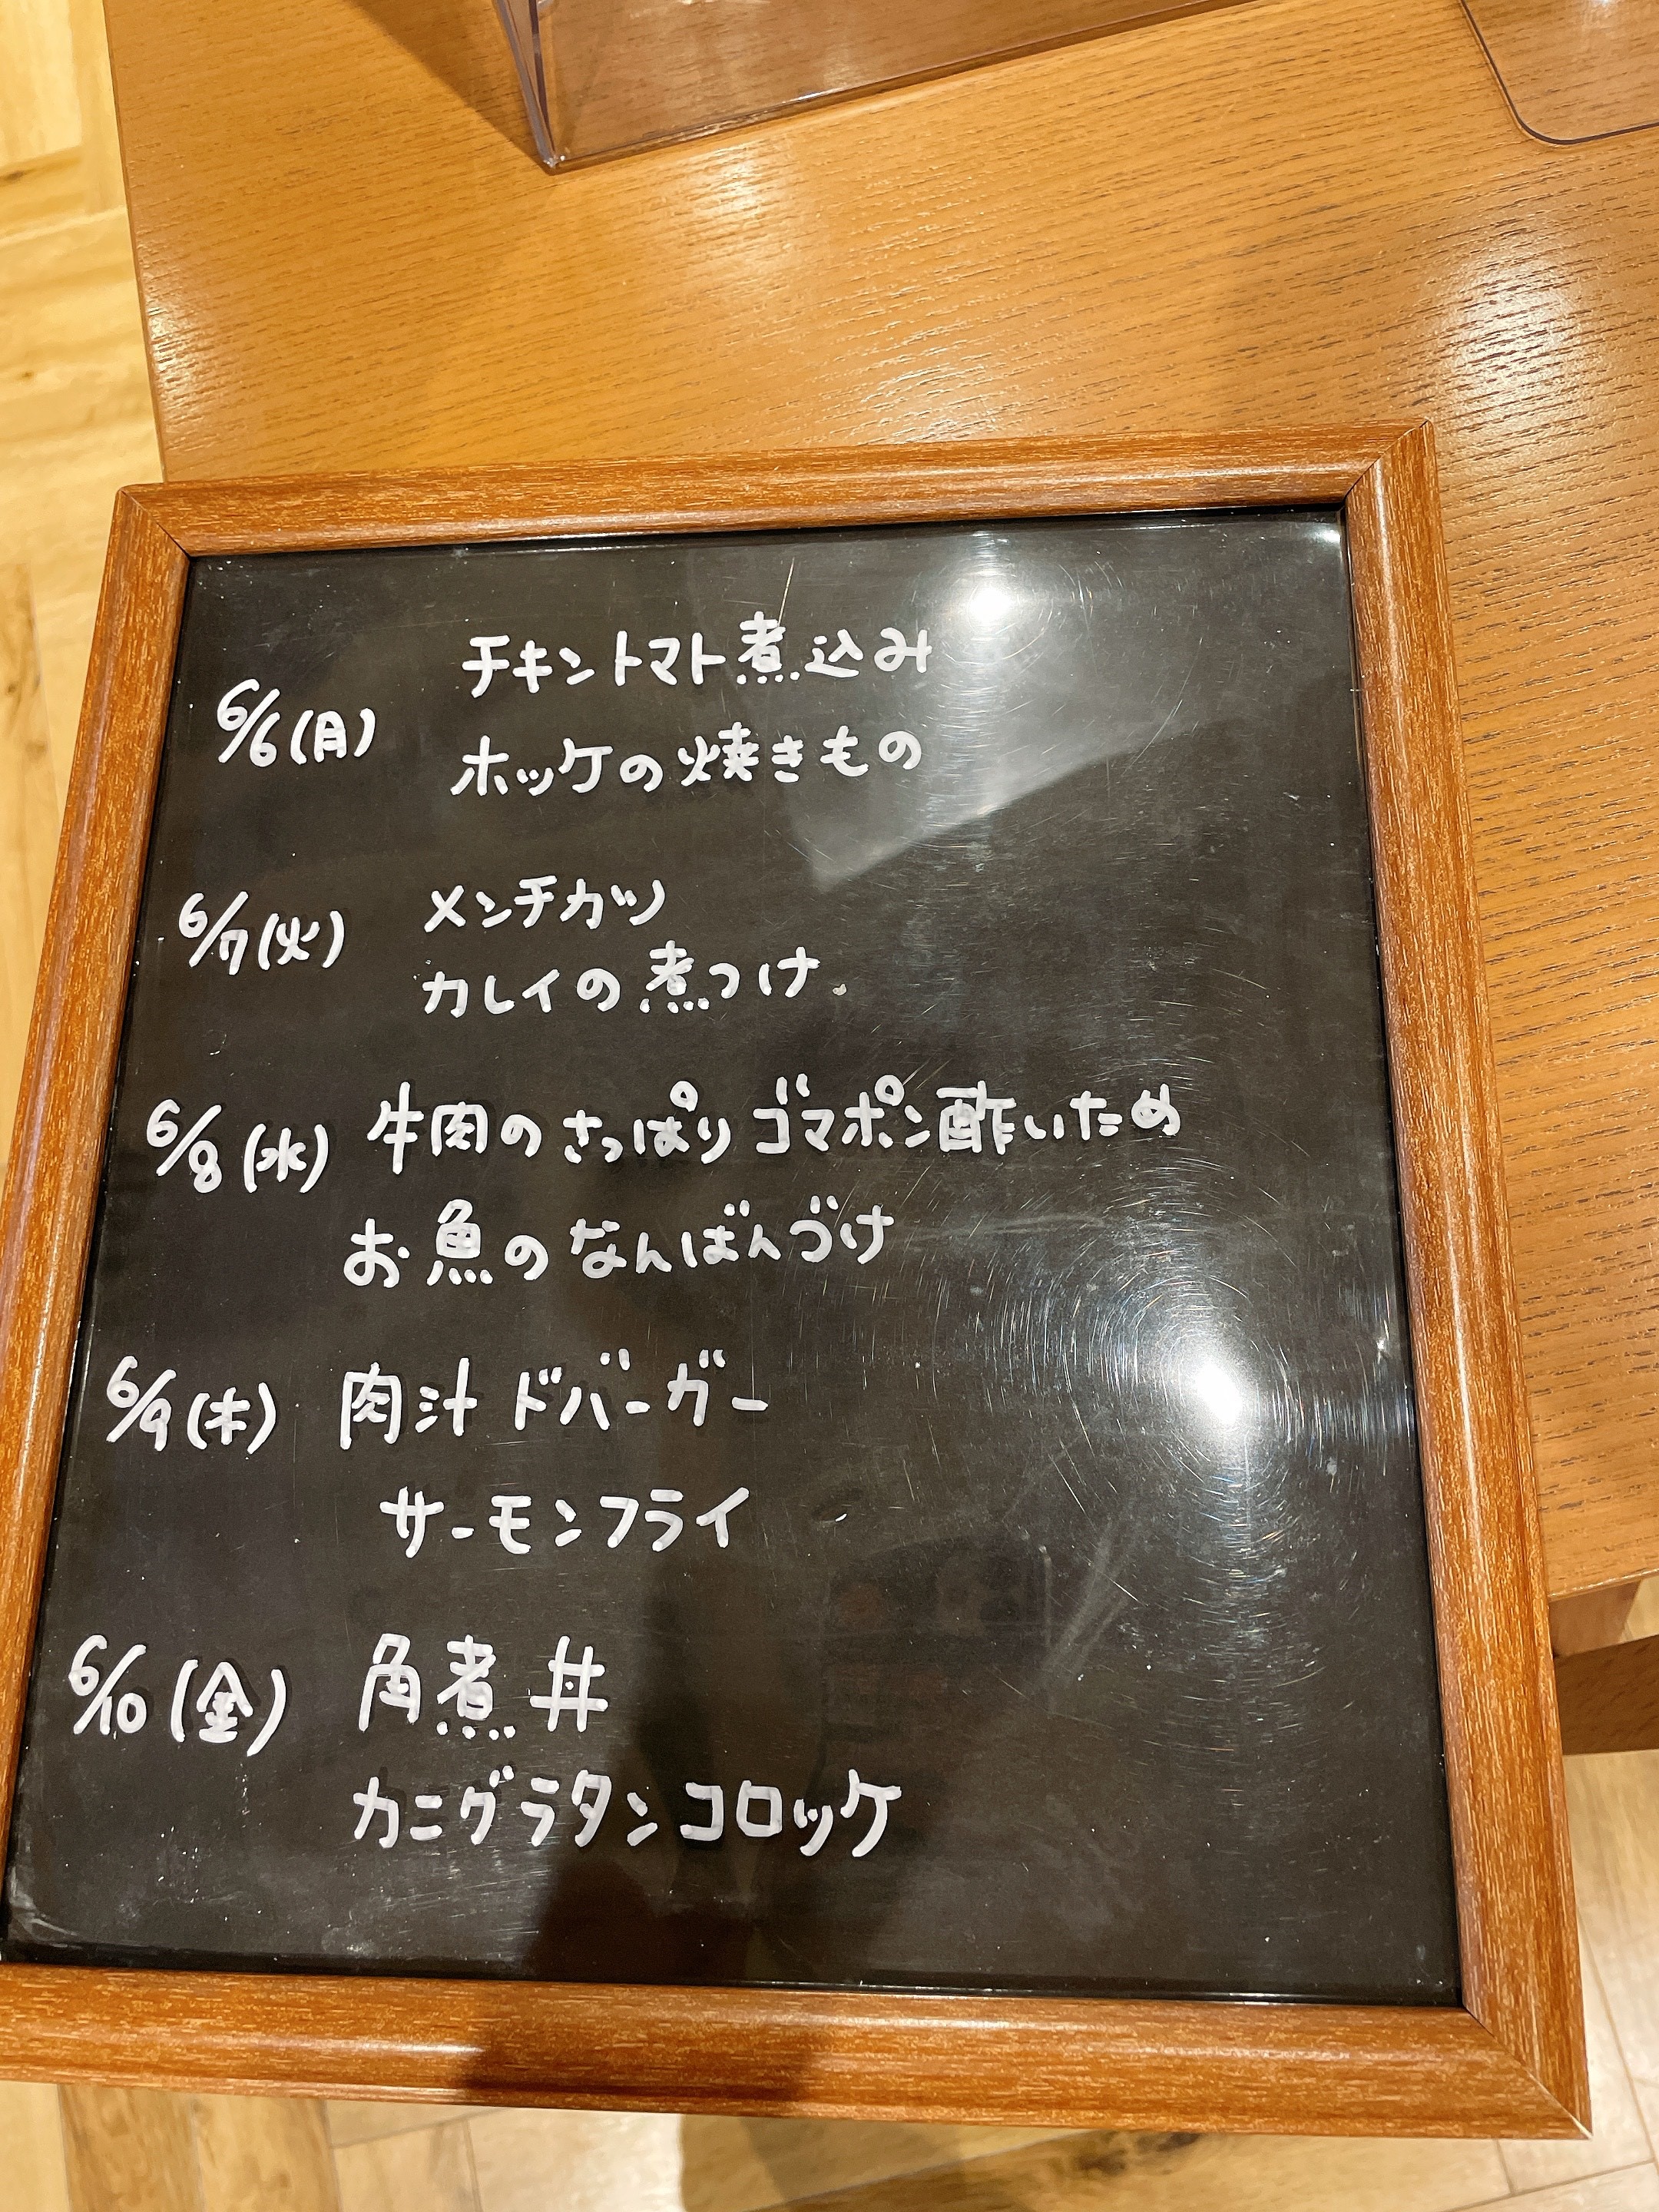 チキントマト煮込み
6/6(月)
ホッケの焼きもの
メンチカツ
6/7(火)
カレイの煮つけ
6/8(水) 牛肉のさっぱりゴマポン酢いため
お魚のなんばんづけ
6/9(木) 肉汁ドバーガー
サーモンフライ
6/10(金) 角煮丼
カニグラタンコロッケ